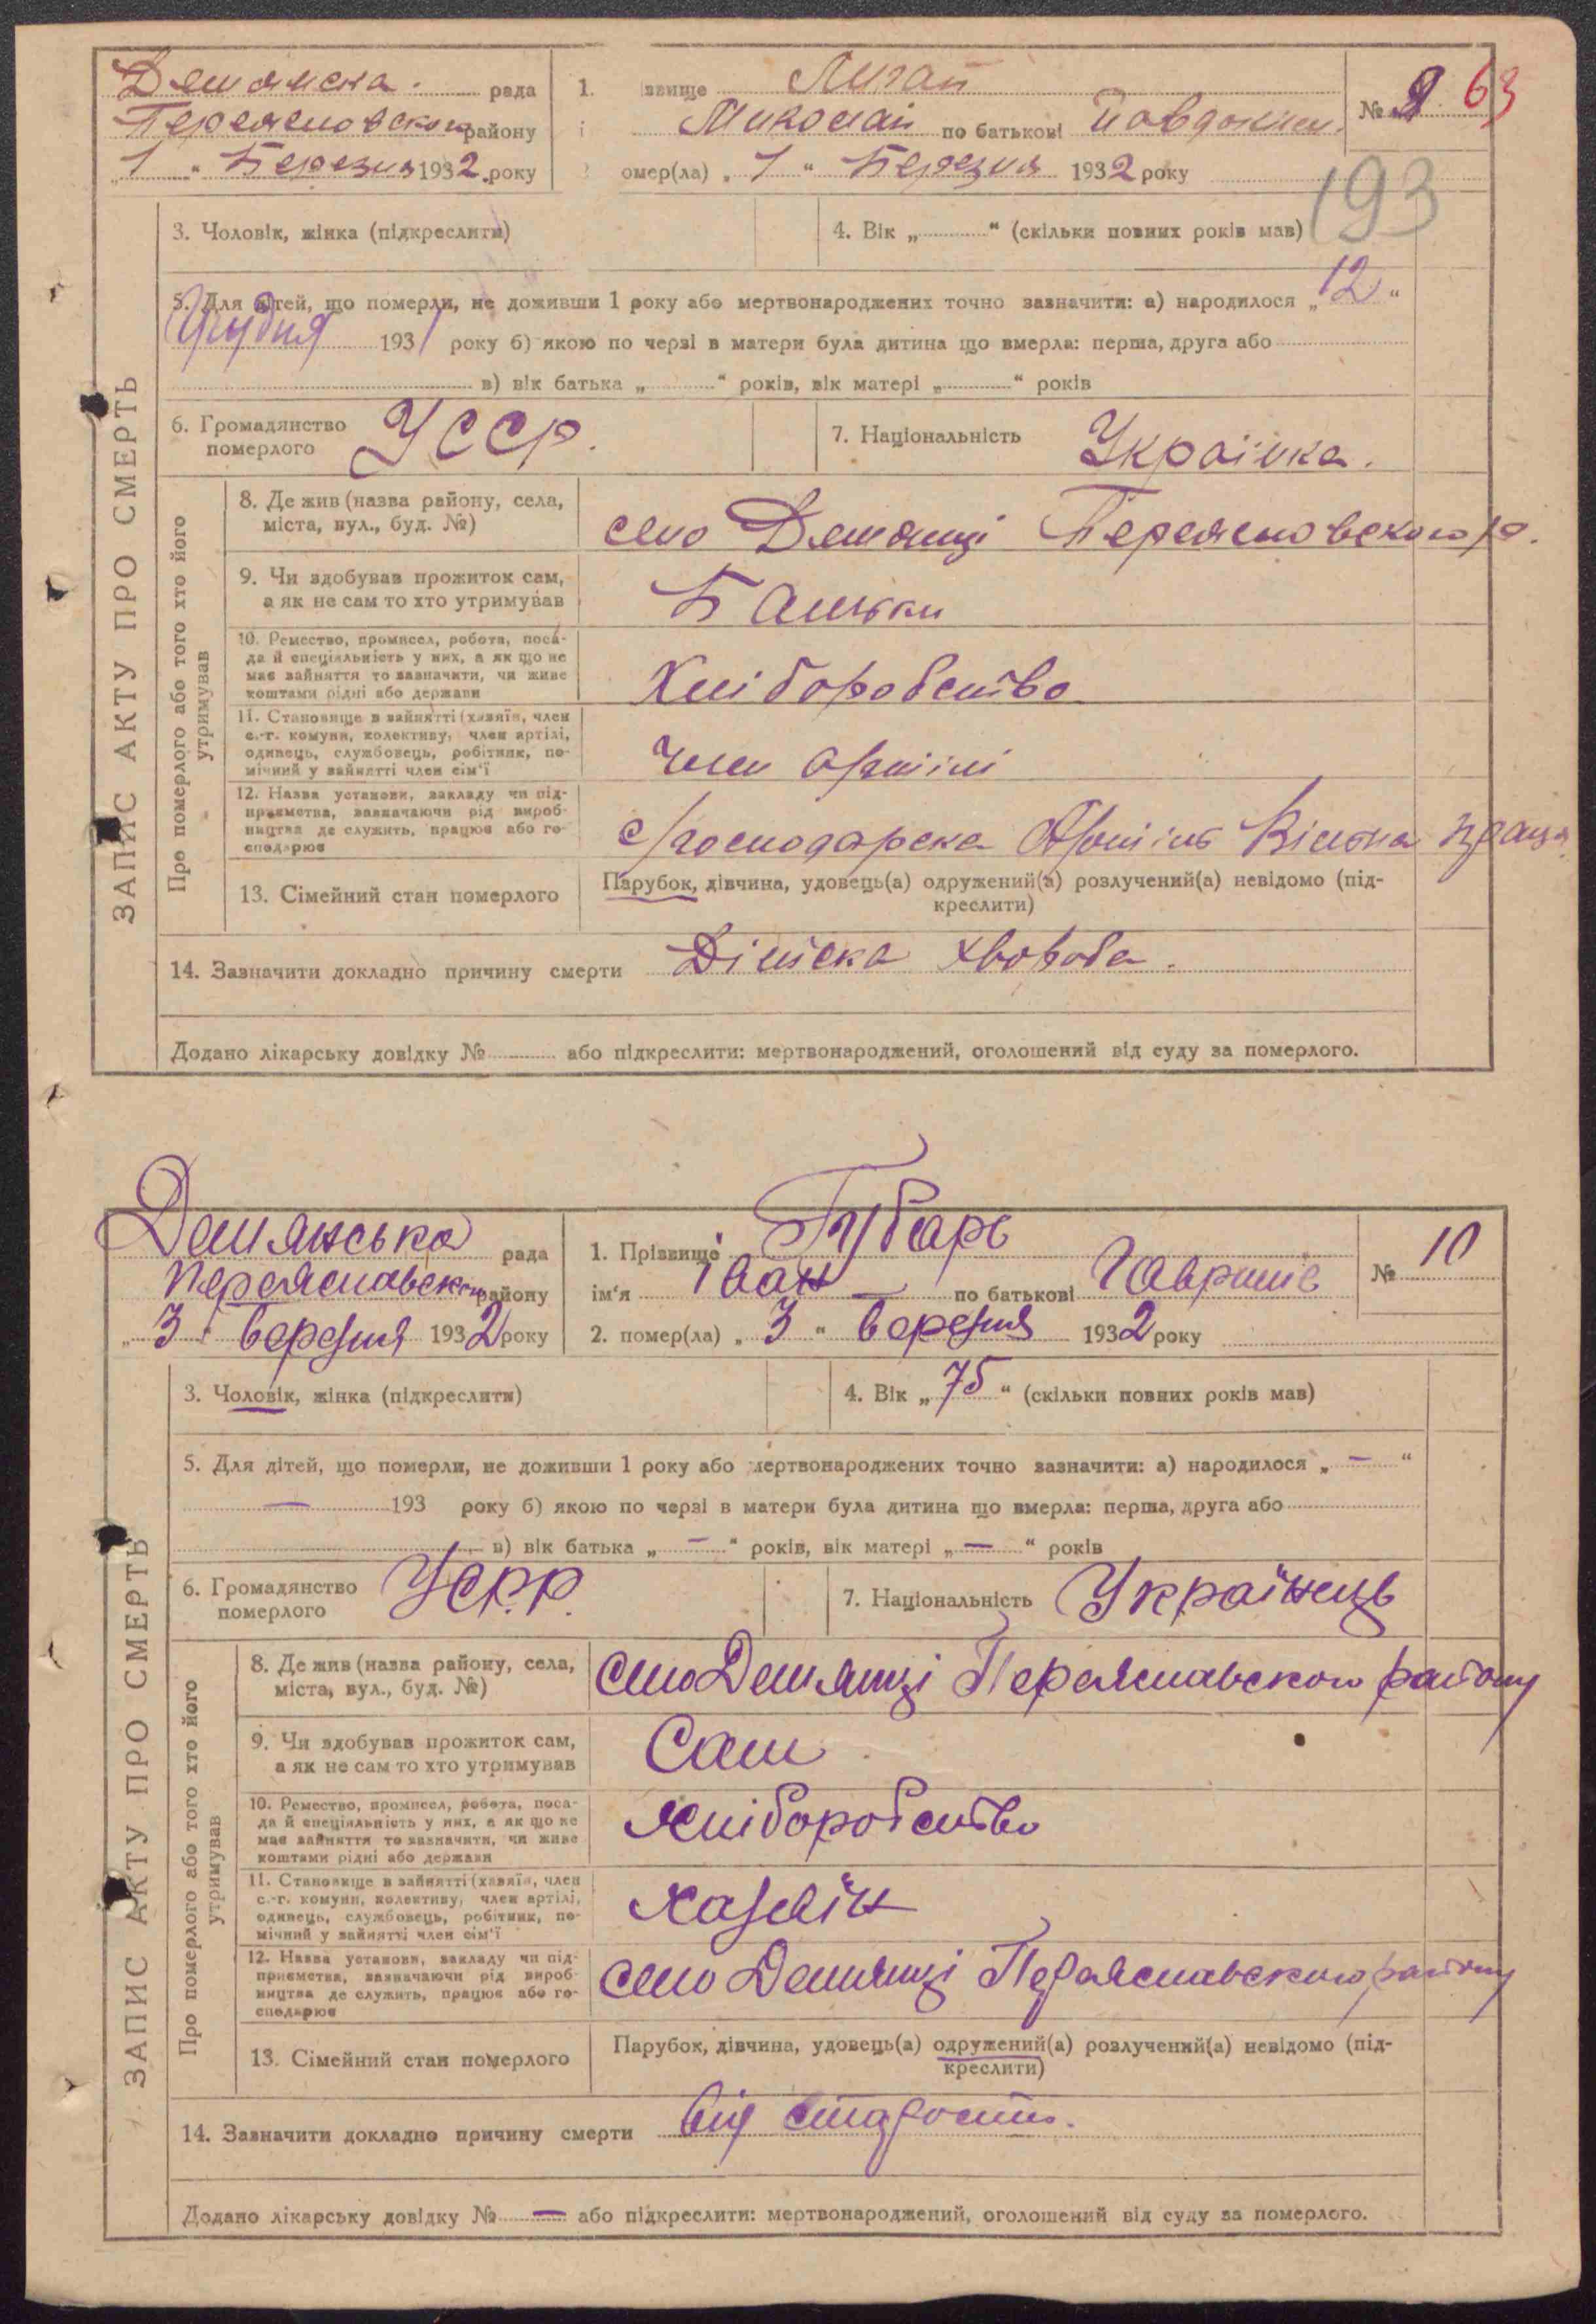 Демянска рада
Переясловского району
„1“ Березня 1932 року
1. звище Лигай
Миколай по батькові
омер(ла) „1“ Березня 1932 року
№ 9 63
193
3. Чоловік, жінка (підкреслити)
4. Вік „ “ (скільки повних років мав)
5. Для дітей, що померли, не доживши 1 року або мертвонароджених точно зазначити: а) народилося „12“
Грудня 1931 року б) якою по черзі в матери була дитина що вмерла: перша, друга або
в) вік батька „ “ років, вік матері „ “ років
6. Громадянство померлого УССР.
7. Національність Українка.
ЗАПИС АКТУ ПРО СМЕРТЬ
Про померлого або того хто його утримував
8. Де жив (назва району, села,
міста, вул., буд. №)
село Демянці Переясловского р.
9. Чи здобував прожиток сам,
а як не сам то хто утримував
Батьки
10. Ремество, промисел, робота, поса-
да й спеціяльність у них, а як що не
має зайняття то зазначити, чи живе
коштами рідні або держави
Хліборобство
11. Становище в зайнятті (хазяїн, член
с.-г. комуни, колективу, член артілі,
одинець, службовець, робітник, по-
мічний у зайнятті член сім'ї
Член Артілі
12. Назва установи, закладу чи під-
приємства, зазначаючи рід вироб-
ництва де служить, працює або го-
сподарює
с/господарска Артіль Вільна праця
13. Сімейний стан померлого
Парубок, дівчина, удовець(а) одружений(а) розлучений(а) невідомо (під-
креслити)
14. Зазначити докладно причину смерти Дітска хвороба.
Додано лікарську довідку № або підкреслити: мертвонароджений, оголошений від суду за померлого.
Демянська рада
Переяславского району
„3“ березня 1932 року
1. Прізвище Губарь
ім'я Іван по батькові Гаврилів
2. помер(ла) „3“ березня 1932 року
№ 10
3. Чоловік, жінка (підкреслити)
4. Вік „75“ (скільки повних років мав)
5. Для дітей, що померли, не доживши 1 року або мертвонароджених точно зазначити: а) народилося „ — “
— 193 року б) якою по черзі в матери була дитина що вмерла: перша, друга або
в) вік батька „ — “ років, вік матері „ — “ років
6. Громадянство померлого УСРР.
7. Національність Українець
ЗАПИС АКТУ ПРО СМЕРТЬ
Про померлого або того хто його утримував
8. Де жив (назва району, села,
міста, вул., буд. №)
село Демянці Переяславского району
9. Чи здобував прожиток сам,
а як не сам то хто утримував
Сам
10. Ремество, промисел, робота, поса-
да й спеціяльність у них, а як що не
має зайняття то зазначити, чи живе
коштами рідні або держави
Хліборобство
11. Становище в зайнятті (хазяїн, член
с.-г. комуни, колективу, член артілі,
одинець, службовець, робітник, по-
мічний у зайнятті член сім'ї
Хазяїн
12. Назва установи, закладу чи під-
приємства, зазначаючи рід вироб-
ництва де служить, працює або го-
сподарює
село Демянці Переяславского району
13. Сімейний стан померлого
Парубок, дівчина, удовець(а) одружений(а) розлучений(а) невідомо (під-
креслити)
14. Зазначити докладно причину смерти від старости.
Додано лікарську довідку № — або підкреслити: мертвонароджений, оголошений від суду за померлого.